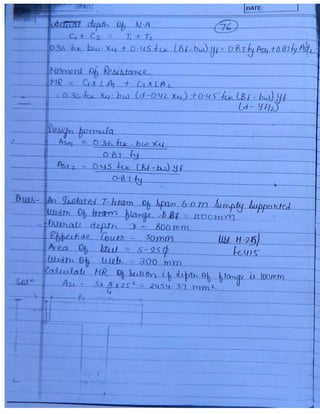 DATE:
76
Actual depth of N.A
C1 + C2 = T1 + T2
0.36 fck bw. xu + 0.45 fck (Bf - bw) yf = 0.87 fy Ast1 + 0.87 fy Ast2
Moment Of Resistance
MR = C1 x LA1 + C2 x LA2
= 0.36 fck xu. bw (d - 0.42 xu) + 0.45 fck (Bf - bw) yf (d - yf/2)
Design formula
Ast1 = 0.36 fck. bw xu
0.87 fy
Ast2 = 0.45 fck (Bf - bw) yf
0.87 fy
Ques- An Isolated T-beam of span 6.0 m simply supported
width of beam flange Bf = 1500 mm
Overall depth D = 800 mm
Effective Cover = 50mm Use M-25
Area Of steel = 5-25ϕ Fe415
Width Of web = 300 mm
Calculate MR Of section if depth Of flange is 100mm
Soln Ast = 5 x π/4 x 25² = 2454.37 mm²